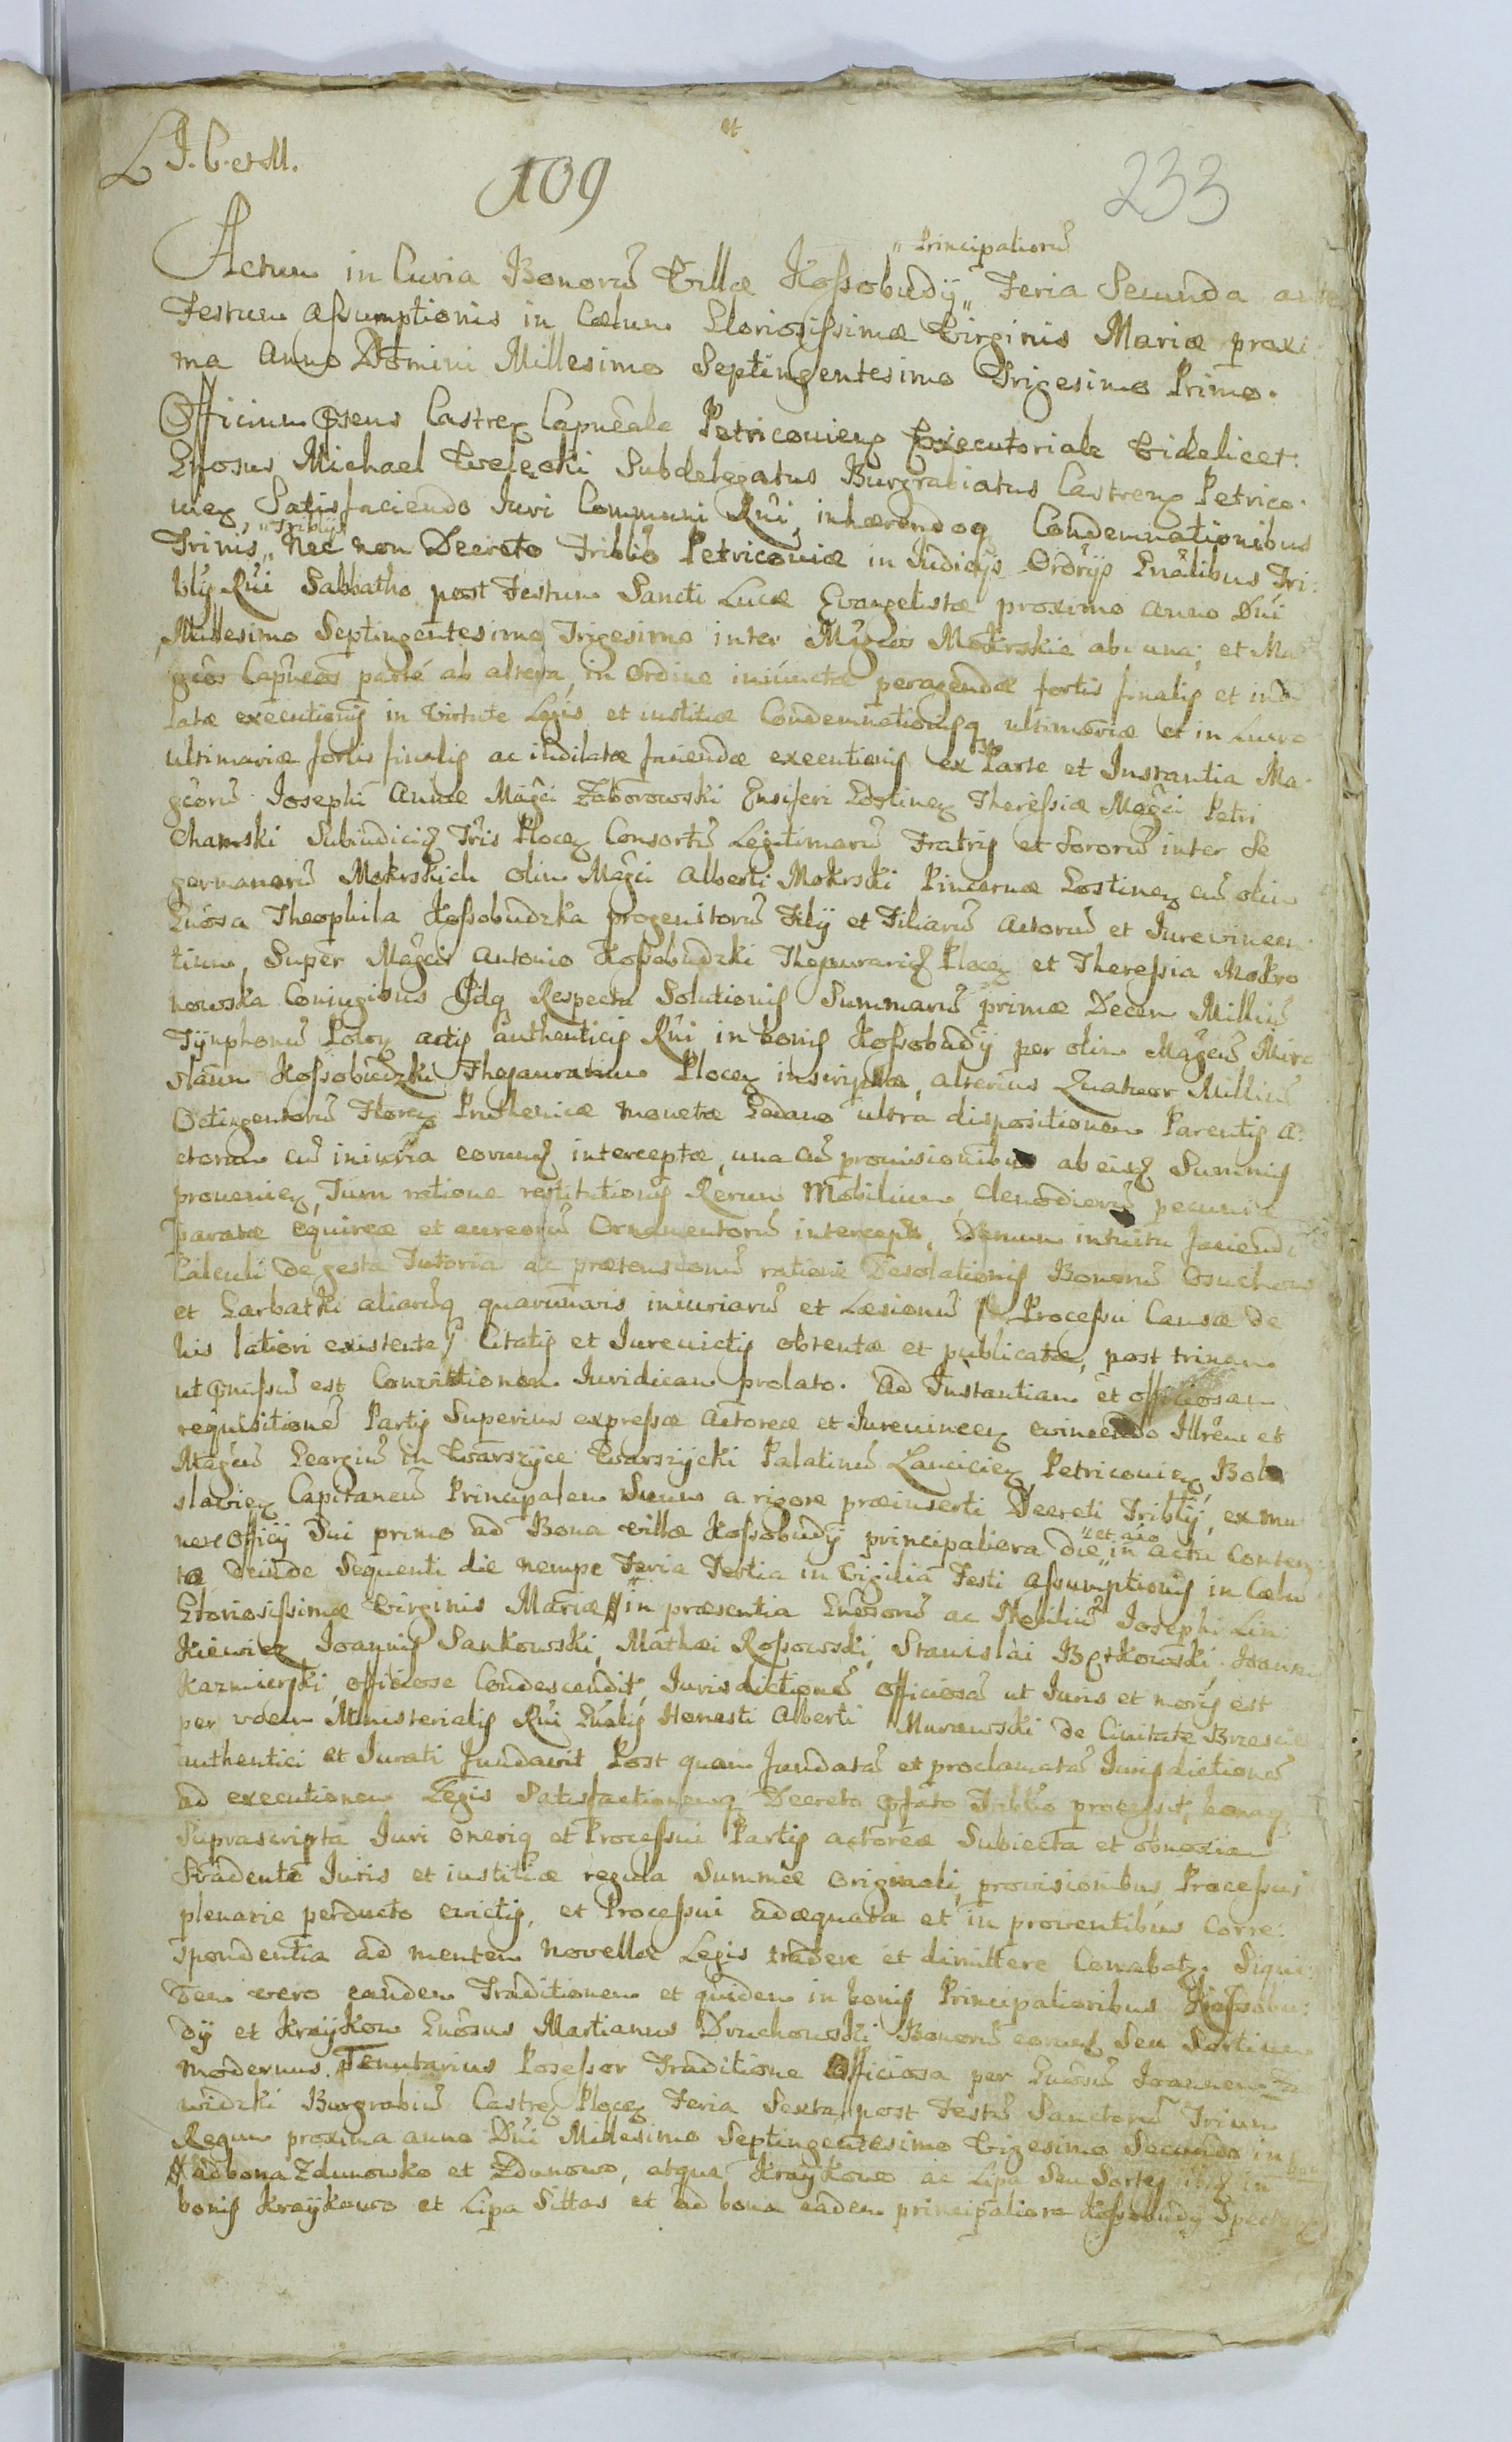 et
L J. C. et M.
109
233
" Principaliorũ
Actum in Curia Bonorũ Villæ Kossobudÿ " Feria Secunda ante
Festum Assumptionis in Cœlum Gloriosissimæ Virginis Mariæ proxi:
ma Anno Domini Millesimo Septingentesimo Trigesimo Primo.
Officium Præsens Castren Capnẽale Petricovien Executoriale Videlicet:
Gnosus Michael Subdelegatus Burgrabiatus Castren Petrico:
vien, Satisfaciendo Juri Communi Rni, inhærendoq Condemnationibus
Trinis " Triblÿ " Nec non Decreto Triblio Petricoviæ in Judicÿs Ordrÿs Gnãlibus Tri:
blÿ Rni Sabbatho post Festum Sancti Lucæ Evangelistæ proximo Anno Dñi
Millesimo Septingentesimo Trigesimo inter Mãgcos Mokrskie ab una; et Ma
gcos Capñeos parte ab altera, in Ordine iniunctæ peragendæ fortis finalis et indi
latæ executionis in Virtute Legis et iustitiæ Condemnationisq ultimariæ et in Lucro
ultimariæ fortis finalis ac indilatæ faciendæ executionis ex Parte et Instantia Ma:
gcorũ Josephi Annæ Mãgci Zaborowski Ensiferi Gostinen Theressiæ Mãgci Petri
Chamski Subiudicis Tris Plocen Consortũ Legitimarũ Fratris et Sororũ inter se
germanorũ Mokrskich olim Mãgci Alberti Mokrski Pincernæ Gostinen cũ olim
Gnosa Theophila Kossobudzka progenitorũ Filÿ et Filiarũ Actorũ et Jurevincen:
tium, Super Mãgcis Antonio Kossobudzki Thesaurario Plocen et Theressia Mokro
nowska Coniugibus Respectu Solutionis Summarũ primæ Decem Milliũ
Tÿnphonũ Polon actis authenticis Rni in bonis Kossobudÿ per olim Mãgcũ Miro
slaum Kossobudzki Thesaurarium Plocen inscriptæ, alterius Quatuor Milliũ
Octingentorũ Floren Pruthenicæ monetæ Gedano ultra dispositionem Parentis A:
ctorum cũ iniuria eorum interceptæ, una cũ provisionibus ab eisd Summis
provenien, Tum ratione restitutionis Rerum Mobilium, Clenodiorũ pecuniæ
paratæ equireæ et aureorũ Ornamentorũ intercept, Demum intuitu faciendi
Calculi de gesta Tutoria ac prætensionũ ratione Desolationis Bonorũ Osuchow
et Garbatki aliarũq quarumvis iniuriarũ et Læsionũ Processu Causæ de
his latiori existente Citatis et Jurevictis obtentæ et publicatæ, post trinam
ut præmissũ est Convictionem Juridicam prolato. Ad Instantiam et officiosam
requisitionẽ Partis Superius expressæ Actoreæ et Jurevincen evincendo Illrem et
Mãgcũ Georgiũ in Warszÿce Warszÿcki Palatinũ Lancicien, Petricovien, Bole
slavien Capitaneũ Principalem Suum a rigore præinserti Decreti Triblÿ, ex mu
nere Officÿ Sui primo ad Bona Villæ Kossobudÿ principaliora die " et año " in actu Conten:
ta, deinde Sequenti die nempe Feria Tertia in Vigilia Festi Assumptionis in Cœlũ
Gloriosissimæ Virginis Mariæ # in præsentia Gnosorũ ac Nobiliũ Josephi Lin:
kiewicz, Joannis Sankowski, Mathæi Rossowski, Stanislai Bętkowski, Joannis
Kazmierski, officiose Condescendit, Jurisdictionẽ Officiosã ut Juris et moris est
per vocem Ministerialis Rni Gnãlis Honesti Alberti Murawski de Civitate Brzescie
authentici et Jurati fundavit Post quam fundatã et proclamatã Jurisdictionẽ
ad executionem Legis Satisfactionemq Decreto præfato Triblio processit, bonaq
Suprascripta Juri onerig et Processui Partis actoreæ Subiecta et obnoxia
Suadente Juris et iustitiæ regula Summæ Originali, provisionibus Processus
plenarie perducto evictis, et Processui adæquata et in proventibus Corre:
spondentia ad mentem Novellæ Legis tradere et dimittere Conabatr. Siqui:
dem vero eandem Traditionem et quidem in bonis Principalioribus Kossobu:
dÿ et Kraÿkow Gnosus Martianus Druchowski Bonorũ eorund Seu Sortium
modernus Tenutarius Possessor Traditione Officiosa per Gnosũ Joannem
widzki Burgrabiũ Castren Plocen Feria Sexta post Festũ Sanctorũ Trium
Regum proxima anno Dñi Millesimo Septingentesimo Vigesimo Secundo in
# ad bona Zdunowko et Zdunowo, atque Kraÿkowo ac Lipa Seu Sortes ibid in
bonis Kraÿkowo et Lipa Sittas et ad bona eadem principaliora Kossobudÿ Spectan